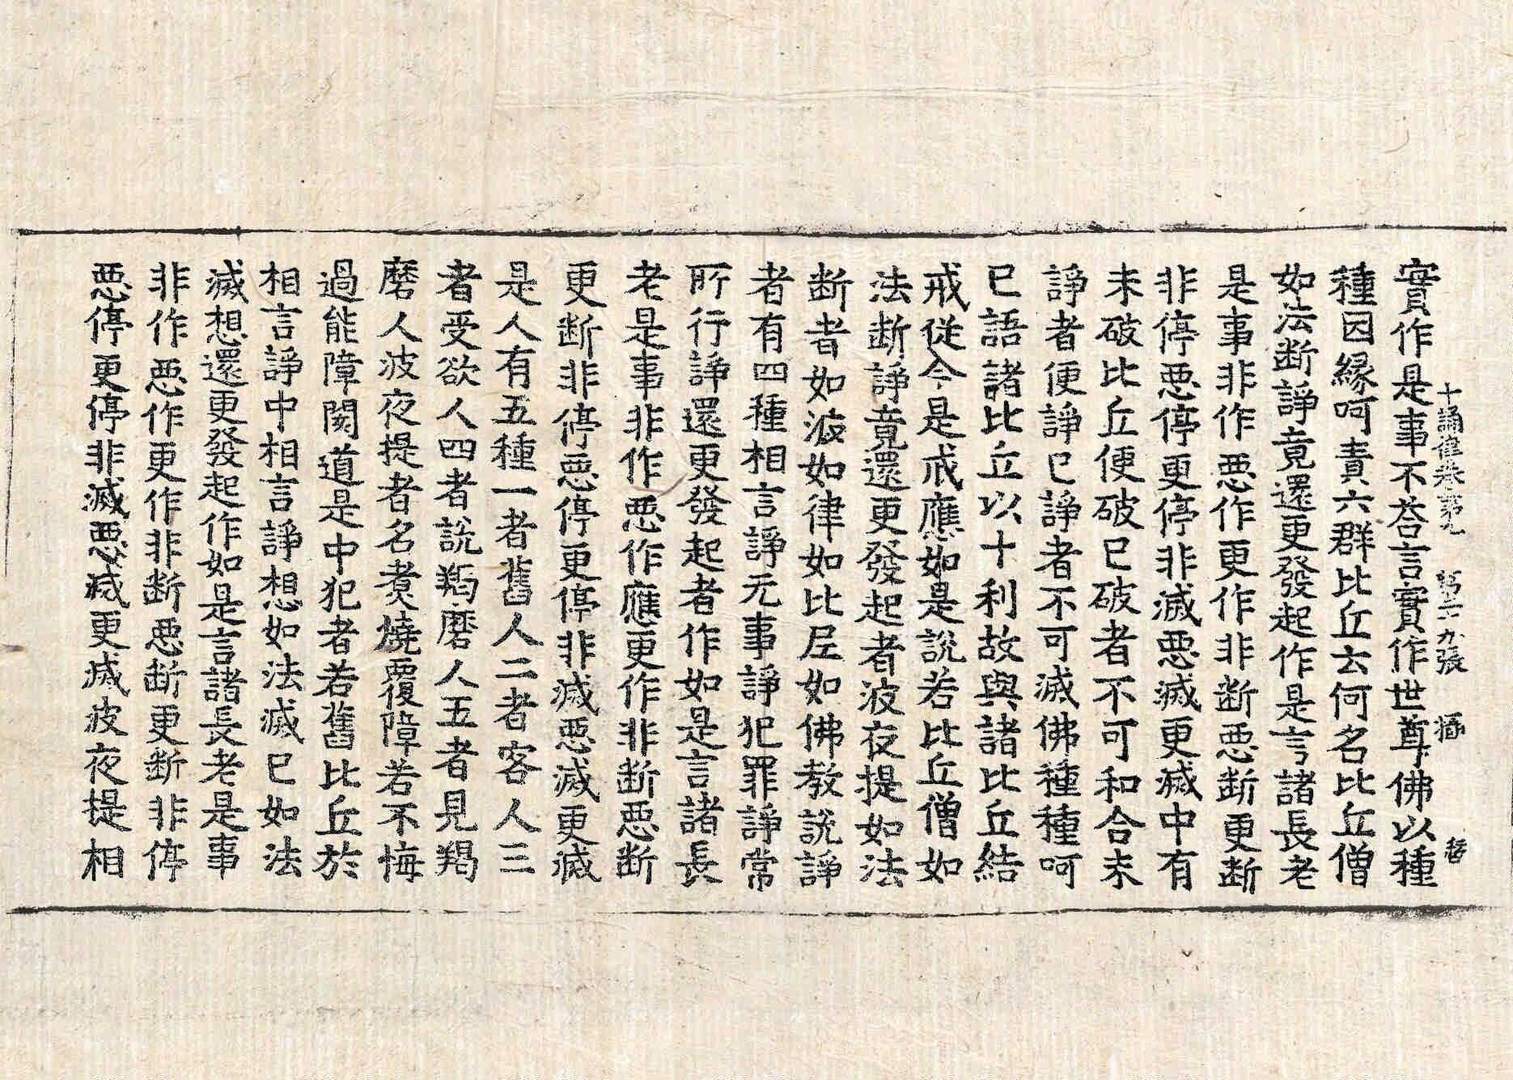 十誦律卷第九 第二九張 㩲
實作是事不荅言實作世尊佛以種
種因緣呵責六群比丘云何名比丘僧
如法断諍竟還更發起作是言諸長老
是事非作惡作更作非断惡断更断
非停惡停更停非滅惡滅更滅中有
未破比丘便破已破者不可和合未
諍者便諍已諍者不可滅佛種種呵
已語諸比丘以十利故與諸比丘結
戒從今是戒應如是說若比丘僧如
法断諍竟還更發起者波夜提如法
断者如波如律如比尼如佛教說諍
者有四種相言諍无事諍犯罪諍常
所行諍還更發起者作如是言諸長
老是事非作惡作應更作非断惡断
更断非停惡停更停非滅惡滅更滅
是人有五種一者舊人二者客人三
者受欲人四者說羯磨人五者見羯
磨人波夜提者名煑燒覆障若不悔
過能障閡道是中犯者若舊比丘於
相言諍中相言諍想如法滅已如法
滅想還更發起作如是言諸長老是事
非作惡作更作非断惡断更断非停
惡停更停非滅惡滅更滅波夜提相